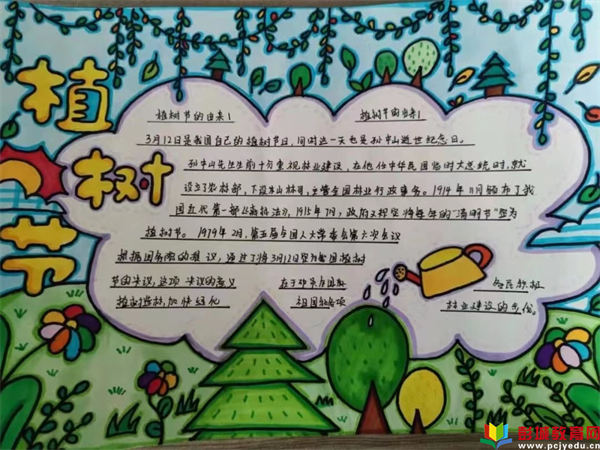 植树节
植树节的由来！ 植树节的由来！
3月12日是我国自己的植树节日，同时这一天也是孙中山逝世纪念日。
孙中山先生生前十分重视林业建设，在他任中华民国临时大总统时，就
设立了农林部，下设山林司，主管全国林业行政事务。1914年11月颁布了我
国近代第一部《森林法》，1915年7月，政府又规定将每年的“清明节”定为
植树节。1979年2月，第五届全国人大常委会第六次会议
根据国务院的提议，通过了将3月12日定为我国植树
节的决议，这项决议的意义 在于动员全国 各民族
植树造林，加快绿化 祖国 林业建设的
彭城教育网
www.pcjyedu.cn